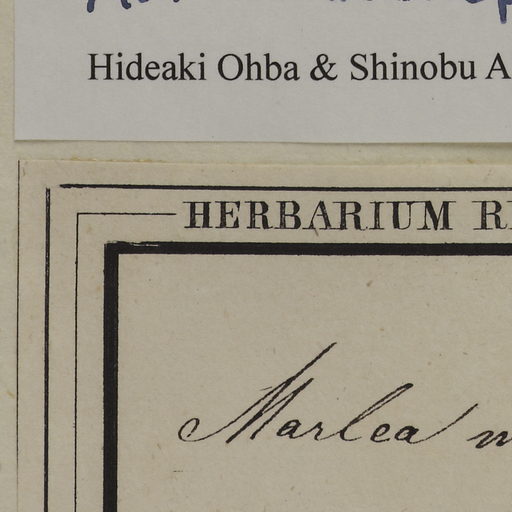 Hideaki Ohba & Shinobu A
HERBARIUM R
Marlea m